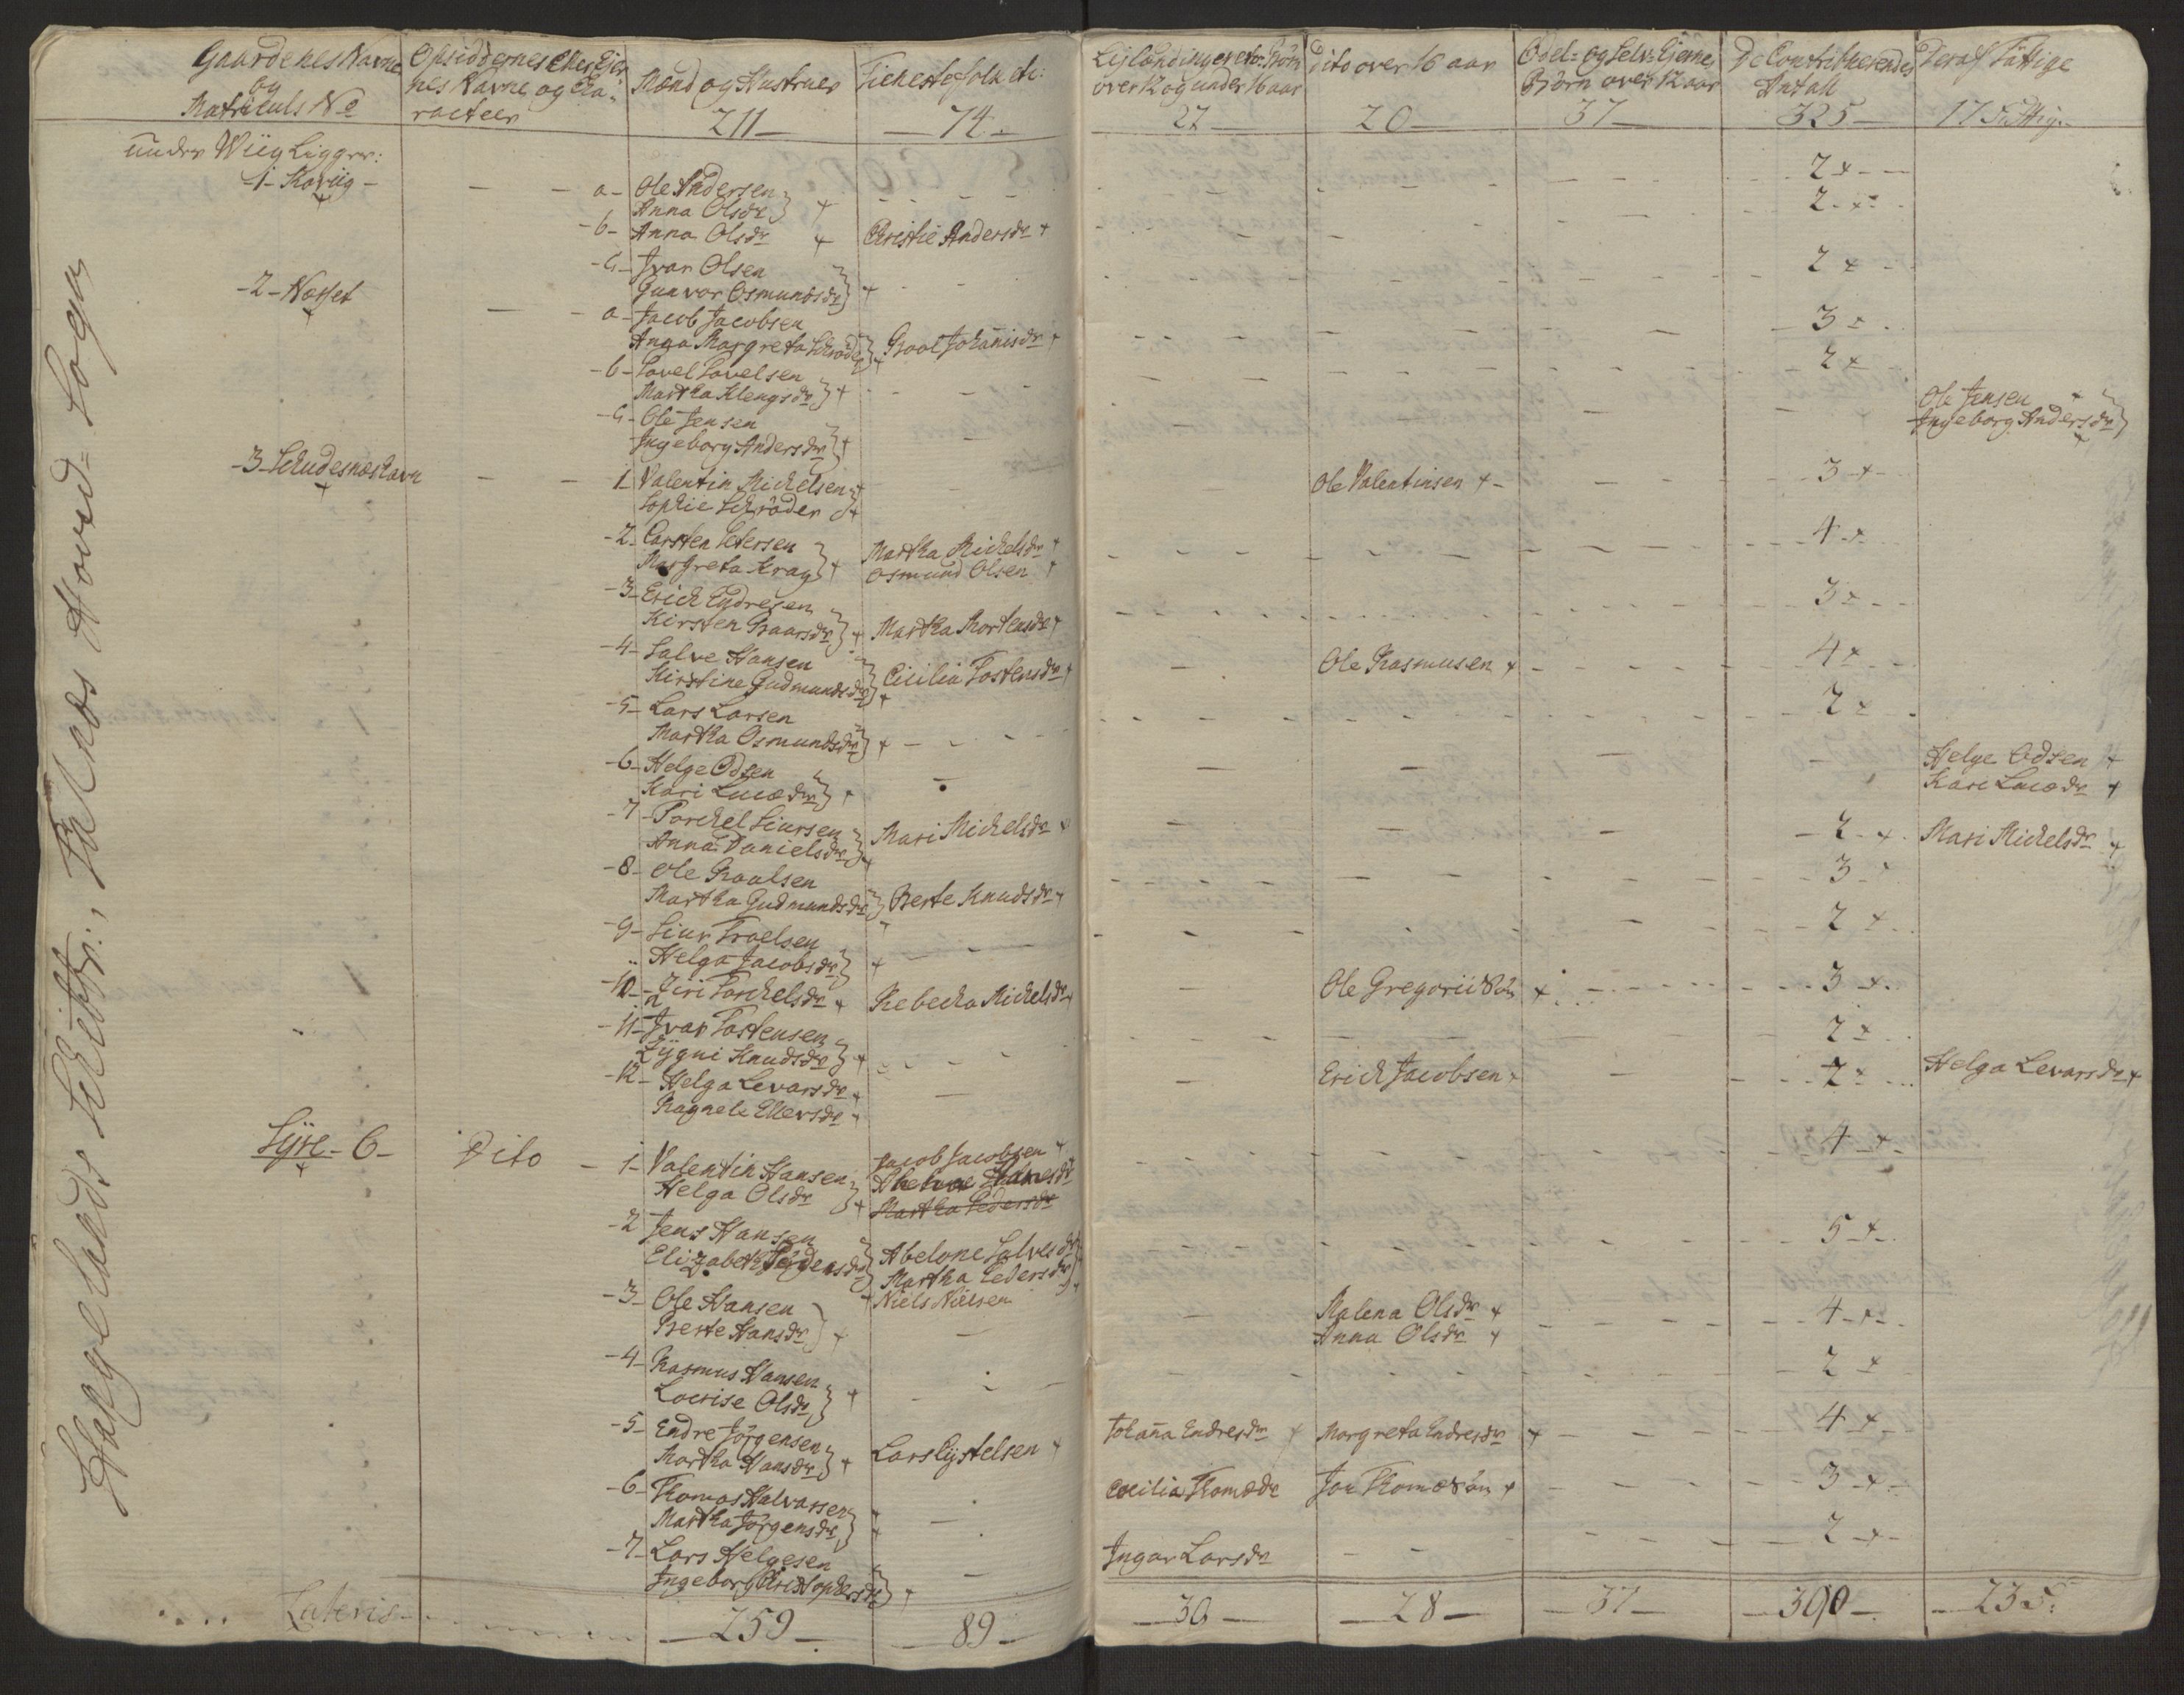 Gaardenes Navne
og
Matriculs No
Opsiddernes eller Ejer-
nes Navne og Ca-
racteer
Mænd og Hustruer
211
Tieneste folk etc:
74
over 12 og under 16 aar
27
Dito over 16 aar
20
Odel- og Selv-Ejernes
Børn over 12 aar
37
De Contribuerendes
Antall
325
Deraf Fattige
17 Fattig.
under Wiig Ligger:
-1- Kaviig -
a- Ole Andersen
Anna Olsdr
2
-b- Anna Olsdr
Christie Andersdr
2
-c- Jvar Olsen
Gunvor Osmundsdr
2
-2- Næsset
a- Jacob Jacobsen
Anna Margreta Schrøder
Johannisdr
3
-b- Pavel Pavelsen
Martha Klengsdr
2
-c- Ole Jensen
Jngeborg Andersdr
Ole Jensen
Jngeborg Andersdr
-3- Schudesnæs havn
1- Valentin Michelsen
Sophie Schrøder
Ole Valentinsen
3
-2- Carsten Petersen
Margreta Krag
Martha Michelsdr
Osmund Olsen
4
-3- Erich Endresen
Kirsten
Martha Mortensdr
3
-4- Salve Hansen
Kirstine Gudmundsdr
Cicilia Tostensdr
Ole Rasmusen
4
-5- Lars Larsen
Martha Osmundsdr
2
-6- Helge Odsen
Kari Lucædr
Helge Odsen
Kari Lucædr
-7- Torchel Siursen
Anna Danielsdr
Mari Michelsdr
2
Mari Michelsdr
-8- Ole Paulsen
Martha Gudmundsdr
Berte Knudsdr
3
-9- Siur Troelsen
Helga Jacobsdr
2
-10- Siri Torchelsdr
Rebecka Michelsdr
Ole Gregorii Søn
3
-11- Jvar Tostensen
Zygni Knudsdr
2
-12- Helga Levarsdr
Ragnele Ellevsdr
Erich Jacobsen
2
Helga Levarsdr
Syre - 6 -
Dito
1- Valentin Hansen
Helga Olsdr
Jacob Jacobsen
Martha Pedersdr
4
-2 Jens Hansen
Elizabeth Jørgensdr
Abelone Salvesdr
Martha Pedersdr
Niels Nielsen
5
-3- Ole Hansen
Berte Hansdr
Malena Olsdr
Anna Olsdr
4
-4- Rasmus Hansen
Lovise Olsdr
2
-5- Endre Jørgensen
Martha Hansdr
Lars Eystelsen
Johanna Endresdr
Margreta Endresdr
4
-6- Thomas Halvarsen
Martha Jørgensdr
Cecilia Thomædr
Jon Thomæsøn
3
-7- Lars Helgesen
Jngeborg Christophersdr
Jngar Larsdr
2
Lateris
259
89
30
28
37
390
23